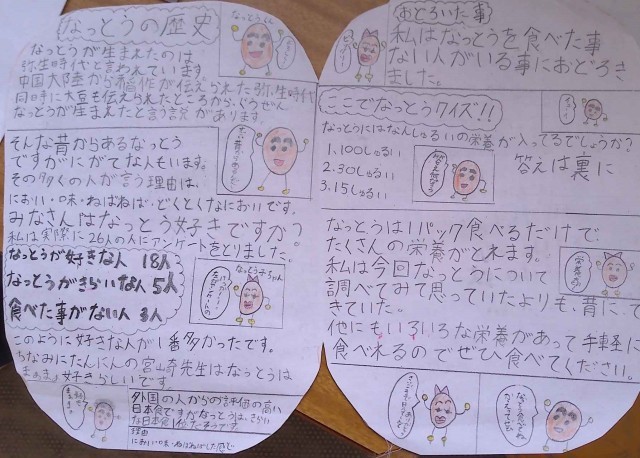 なっとうの歴史
なっとうが生まれたのは
弥生時代と言われています
中国大陸から稲作が伝えられた弥生時代
同時に大豆も伝えられたところから、ぐうぜん
なっとうが生まれたと言う説があります。
そんな昔からあるなっとう
ですがにがてな人もいます。
その多くの人が言う理由は、
におい・味・ねばねば・どくとくなにおいです。
みなさんはなっとう好きですか?
私は実際に26人の人にアンケートをとりました。
なっとうが好きな人 18人
なっとうがきらいな人 5人
食べた事がない人 3人
なっとう子ちゃん
このように好きな人が1番多かったです。
ちなみにたんにんの宮崎先生はなっとうは
まぁまぁ好きらしいです。
外国の人からの評価の高い
日本食ですがなっとうは、きらい
な日本食1位だそうです
理由
におい・味・ねばねばした感じ
おどろいた事
私はなっとうを食べた事
ない人がいる事におどろき
ました。
ここでなっとうクイズ!!
なっとうにはなんしゅるいの栄養が入ってるでしょうか?
1.100しゅるい
2.30しゅるい
3.15しゅるい
答えは裏に
なっとうは1パック食べるだけで
たくさんの栄養がとれます。
私は今回なっとうについて
調べてみて思っていたよりも、昔にで
きていた。
他にもいろいろな栄養があって手軽に
食べれるのでぜひ食べてください。